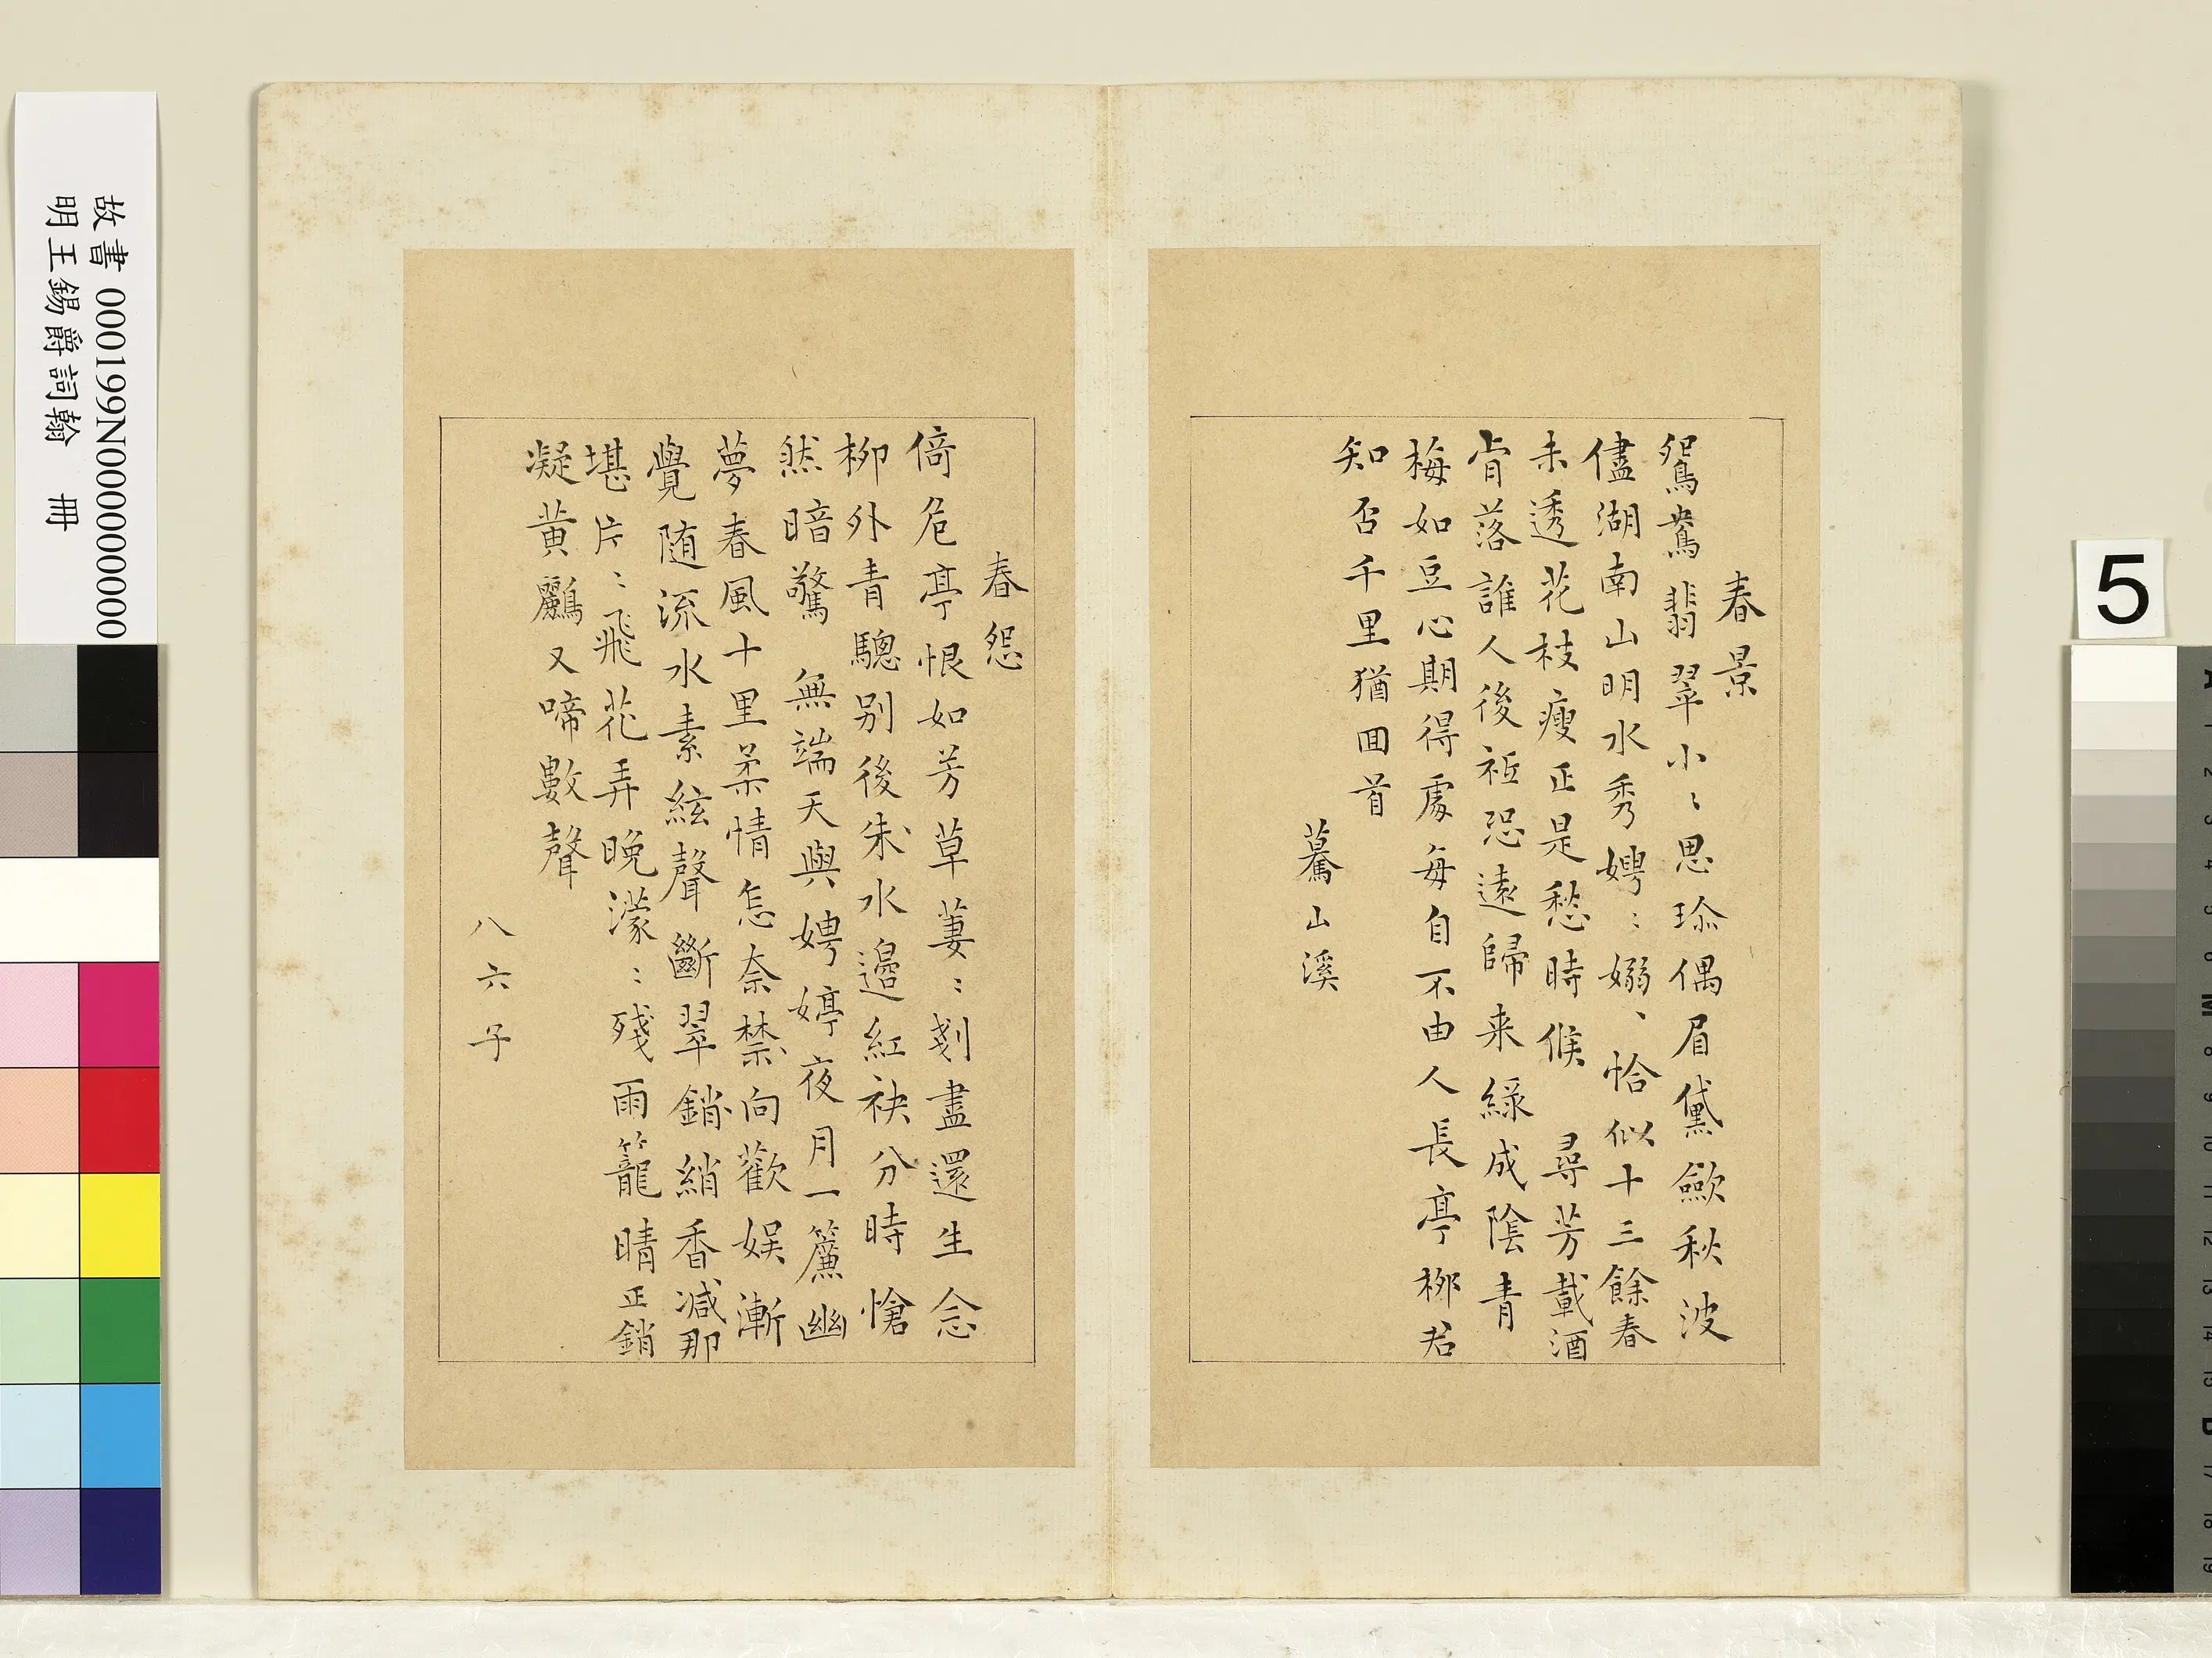 春景
鴛鴦翡翠小〻思珍偶眉黛歛秋波
儘湖南山明水秀娉〻嫋〻恰似十三餘春
未透花枝瘦正是愁時候 尋芳載酒
肯落誰人後祗恐遠歸来緑成陰青
梅如豆心期得處每自不由人長亭栁君
知否千里猶囬首
驀山溪
春怨
倚危亭恨如芳草萋〻剗盡還生念
栁外青驄别後水邉紅袂分時愴
然暗驚 無端天與娉婷夜月一簾幽
夢春風十里柔情怎奈向歡娱漸
覺随流水素絃聲斷翠銷綃香减那
堪片〻飛花弄晚濛〻殘雨籠晴正銷
凝黄鸝又啼數聲
八六子
故書 000199N000000000
明王錫爵詞翰 冊
5